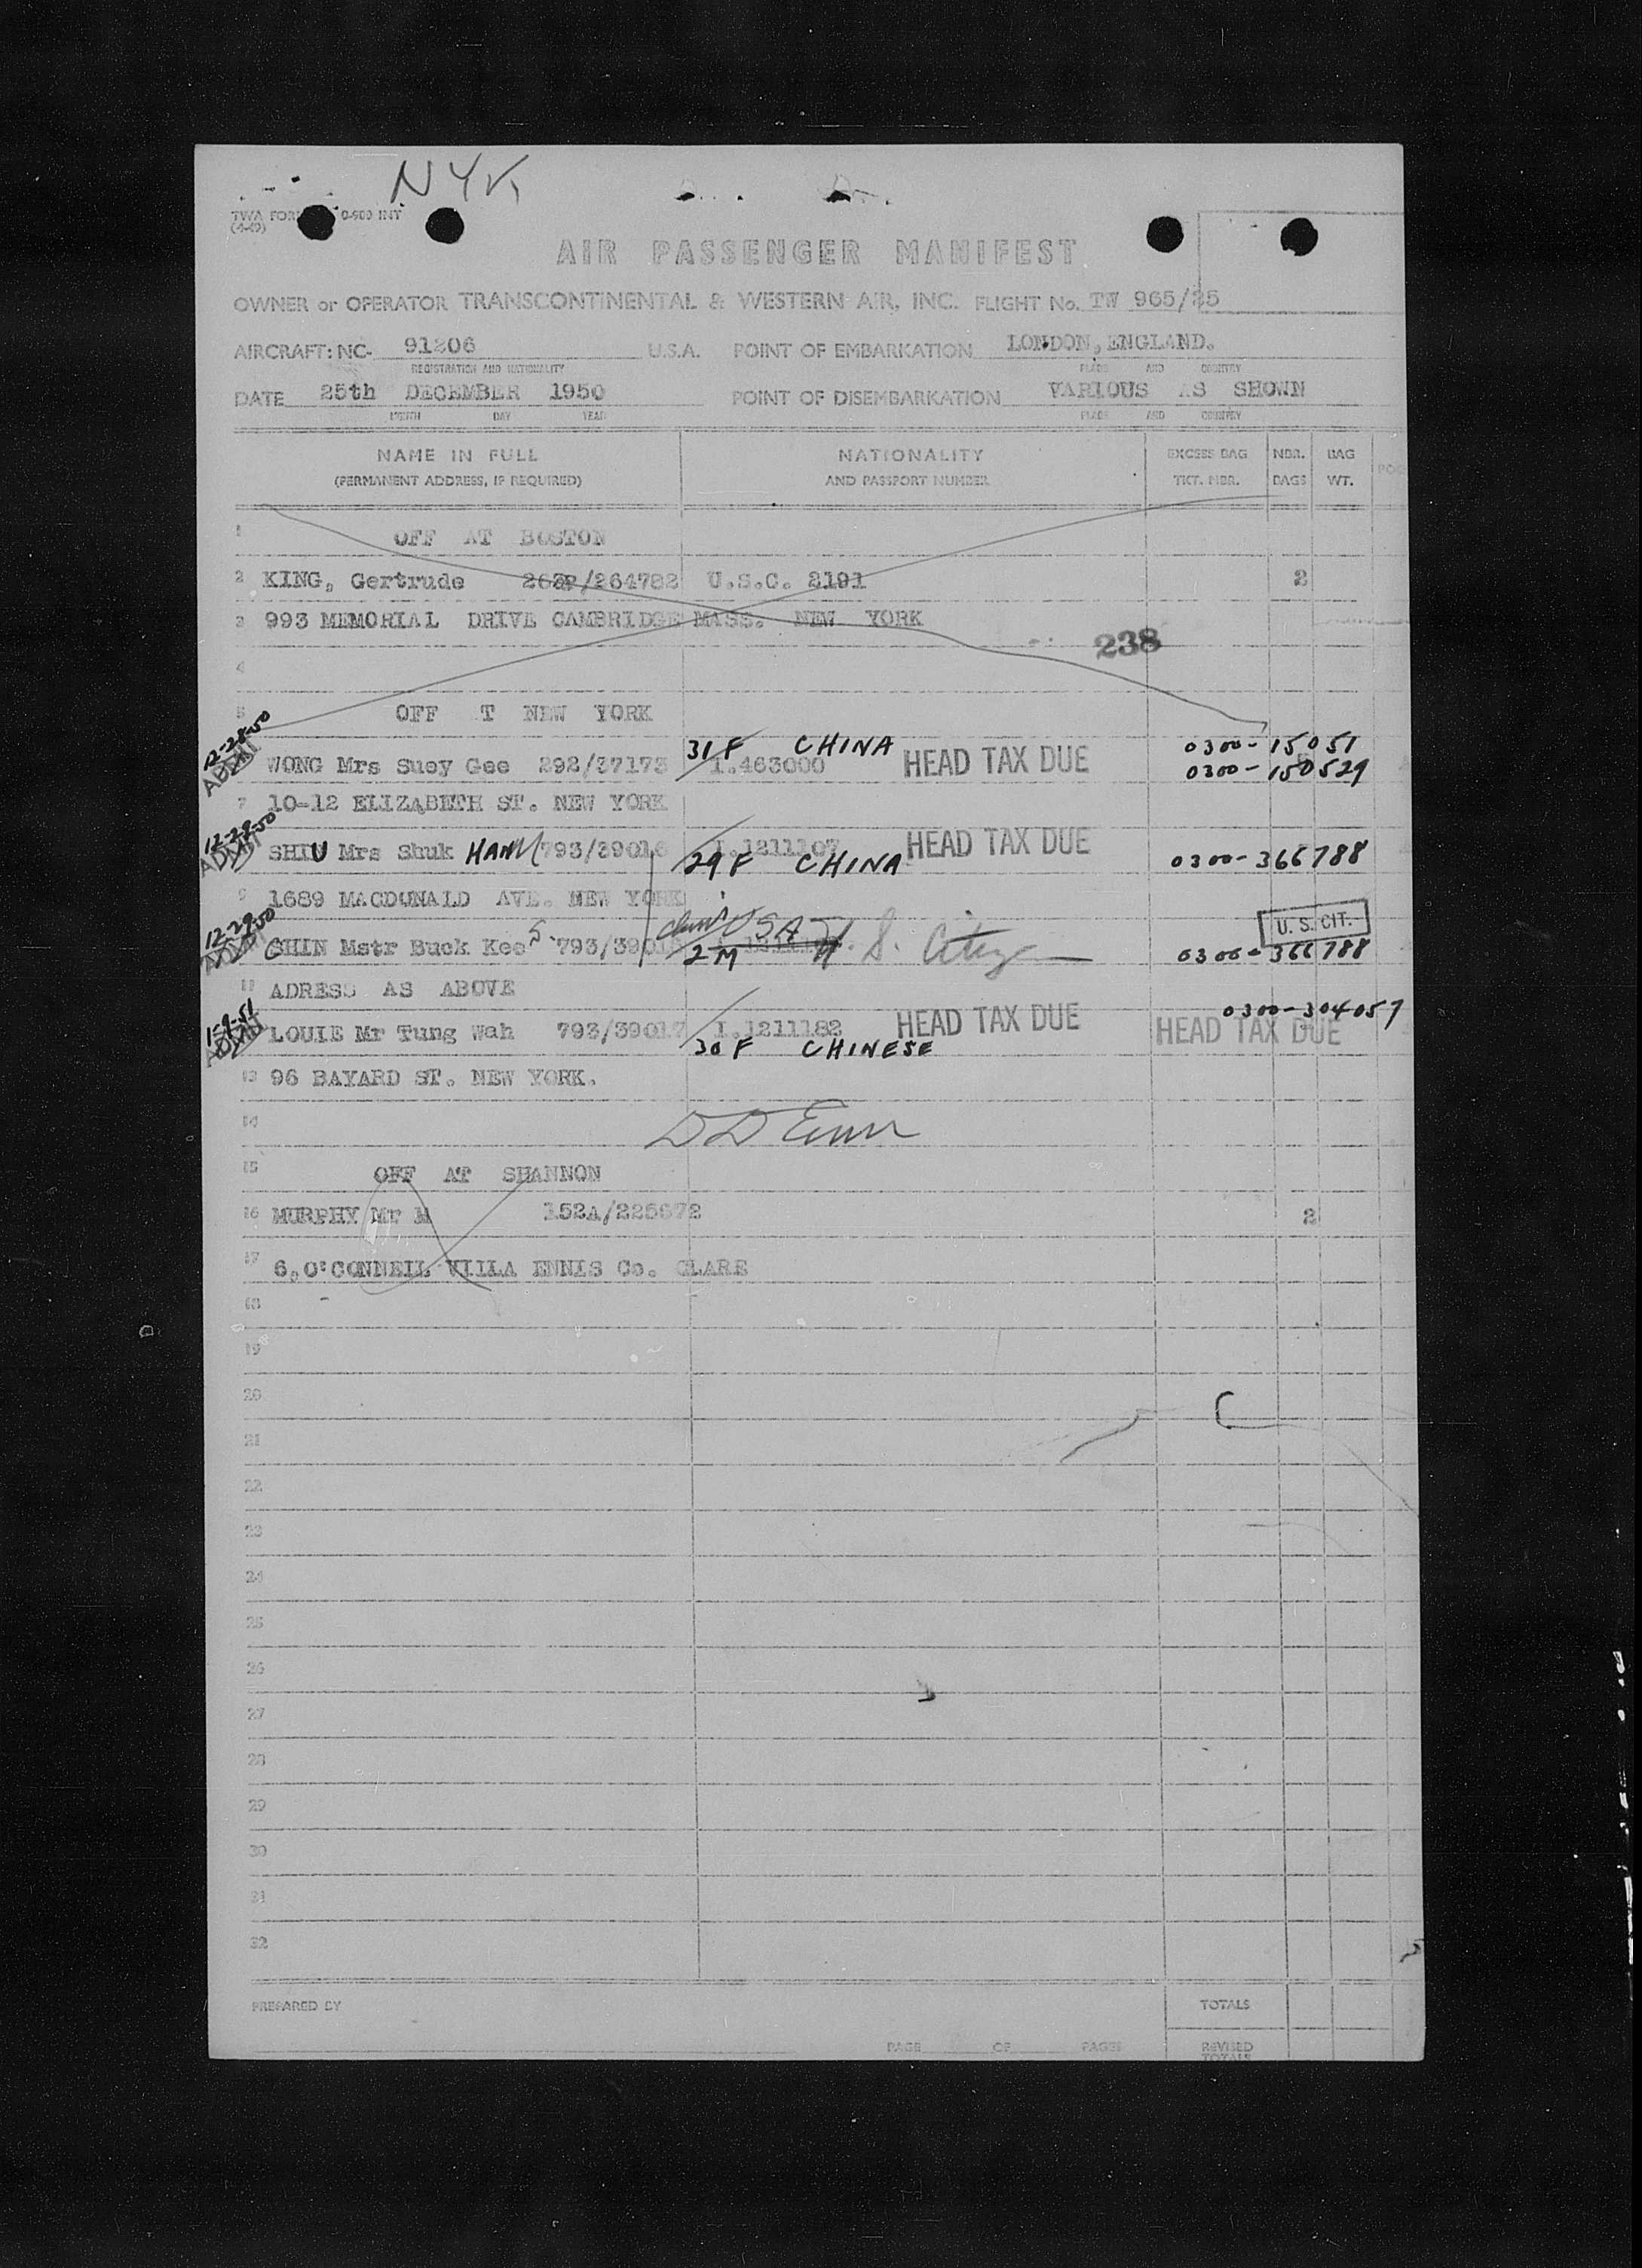 NYK
TWA FORM 0-900 INT
(4-49)
AIR PASSENGER MANIFEST
OWNER or OPERATOR TRANSCONTINENTAL & WESTERN AIR, INC. FLIGHT No. TW 965/25
AIRCRAFT: NC- 91206 U.S.A. POINT OF EMBARKATION LONDON, ENGLAND.
REGISTRATION AND NATIONALITY PLACE AND COUNTRY
DATE 25th DECEMBER 1950 POINT OF DISEMBARKATION VARIOUS AS SHOWN
MONTH DAY YEAR PLACE AND COUNTRY
NAME IN FULL NATIONALITY EXCESS BAG NBR. BAG
(PERMANENT ADDRESS, IF REQUIRED) AND PASSPORT NUMBER TKT. NBR. BAGS WT.
1 OFF AT BOSTON
2 KING, Gertrude /264782 U.S.C. 2191 2
3 993 MEMORIAL DRIVE CAMBRIDGE MASS. NEW YORK
238
4
5 OFF T NEW YORK
12-28-50 31 F CHINA 0300-15051
ADMIT WONG Mrs Suey Gee 292/37173 I.463000 HEAD TAX DUE 0300-150529
7 10-12 ELIZABETH ST. NEW YORK
12-29-50
ADMIT SHIU Mrs Shuk HANG 793/39016 I.1211107 HEAD TAX DUE
29 F CHINA 0300-366788
9 1689 MACDONALD AVE. NEW YORK
12-29-50 USA U. S. CIT.
ADMIT CHIN Mstr Buck Kee S. 793/3901 2 M U. S. Citizen 0300-366788
11 ADRESS AS ABOVE
1-9-51 0300-304057
ADMIT LOUIE Mr Tung Wah 793/39017 I.1211182 HEAD TAX DUE HEAD TAX DUE
30 F CHINESE
13 96 BAYARD ST. NEW YORK.
14
15 OFF AT SHANNON
16 MURPHY Mr M 152A/225672 2
17 6, O'CONNELL VILLA ENNIS Co. CLARE
18
19
20
21
22
23
24
25
26
27
28
29
30
31
32
PREPARED BY TOTALS
PAGE OF PAGES REVISED
TOTALS